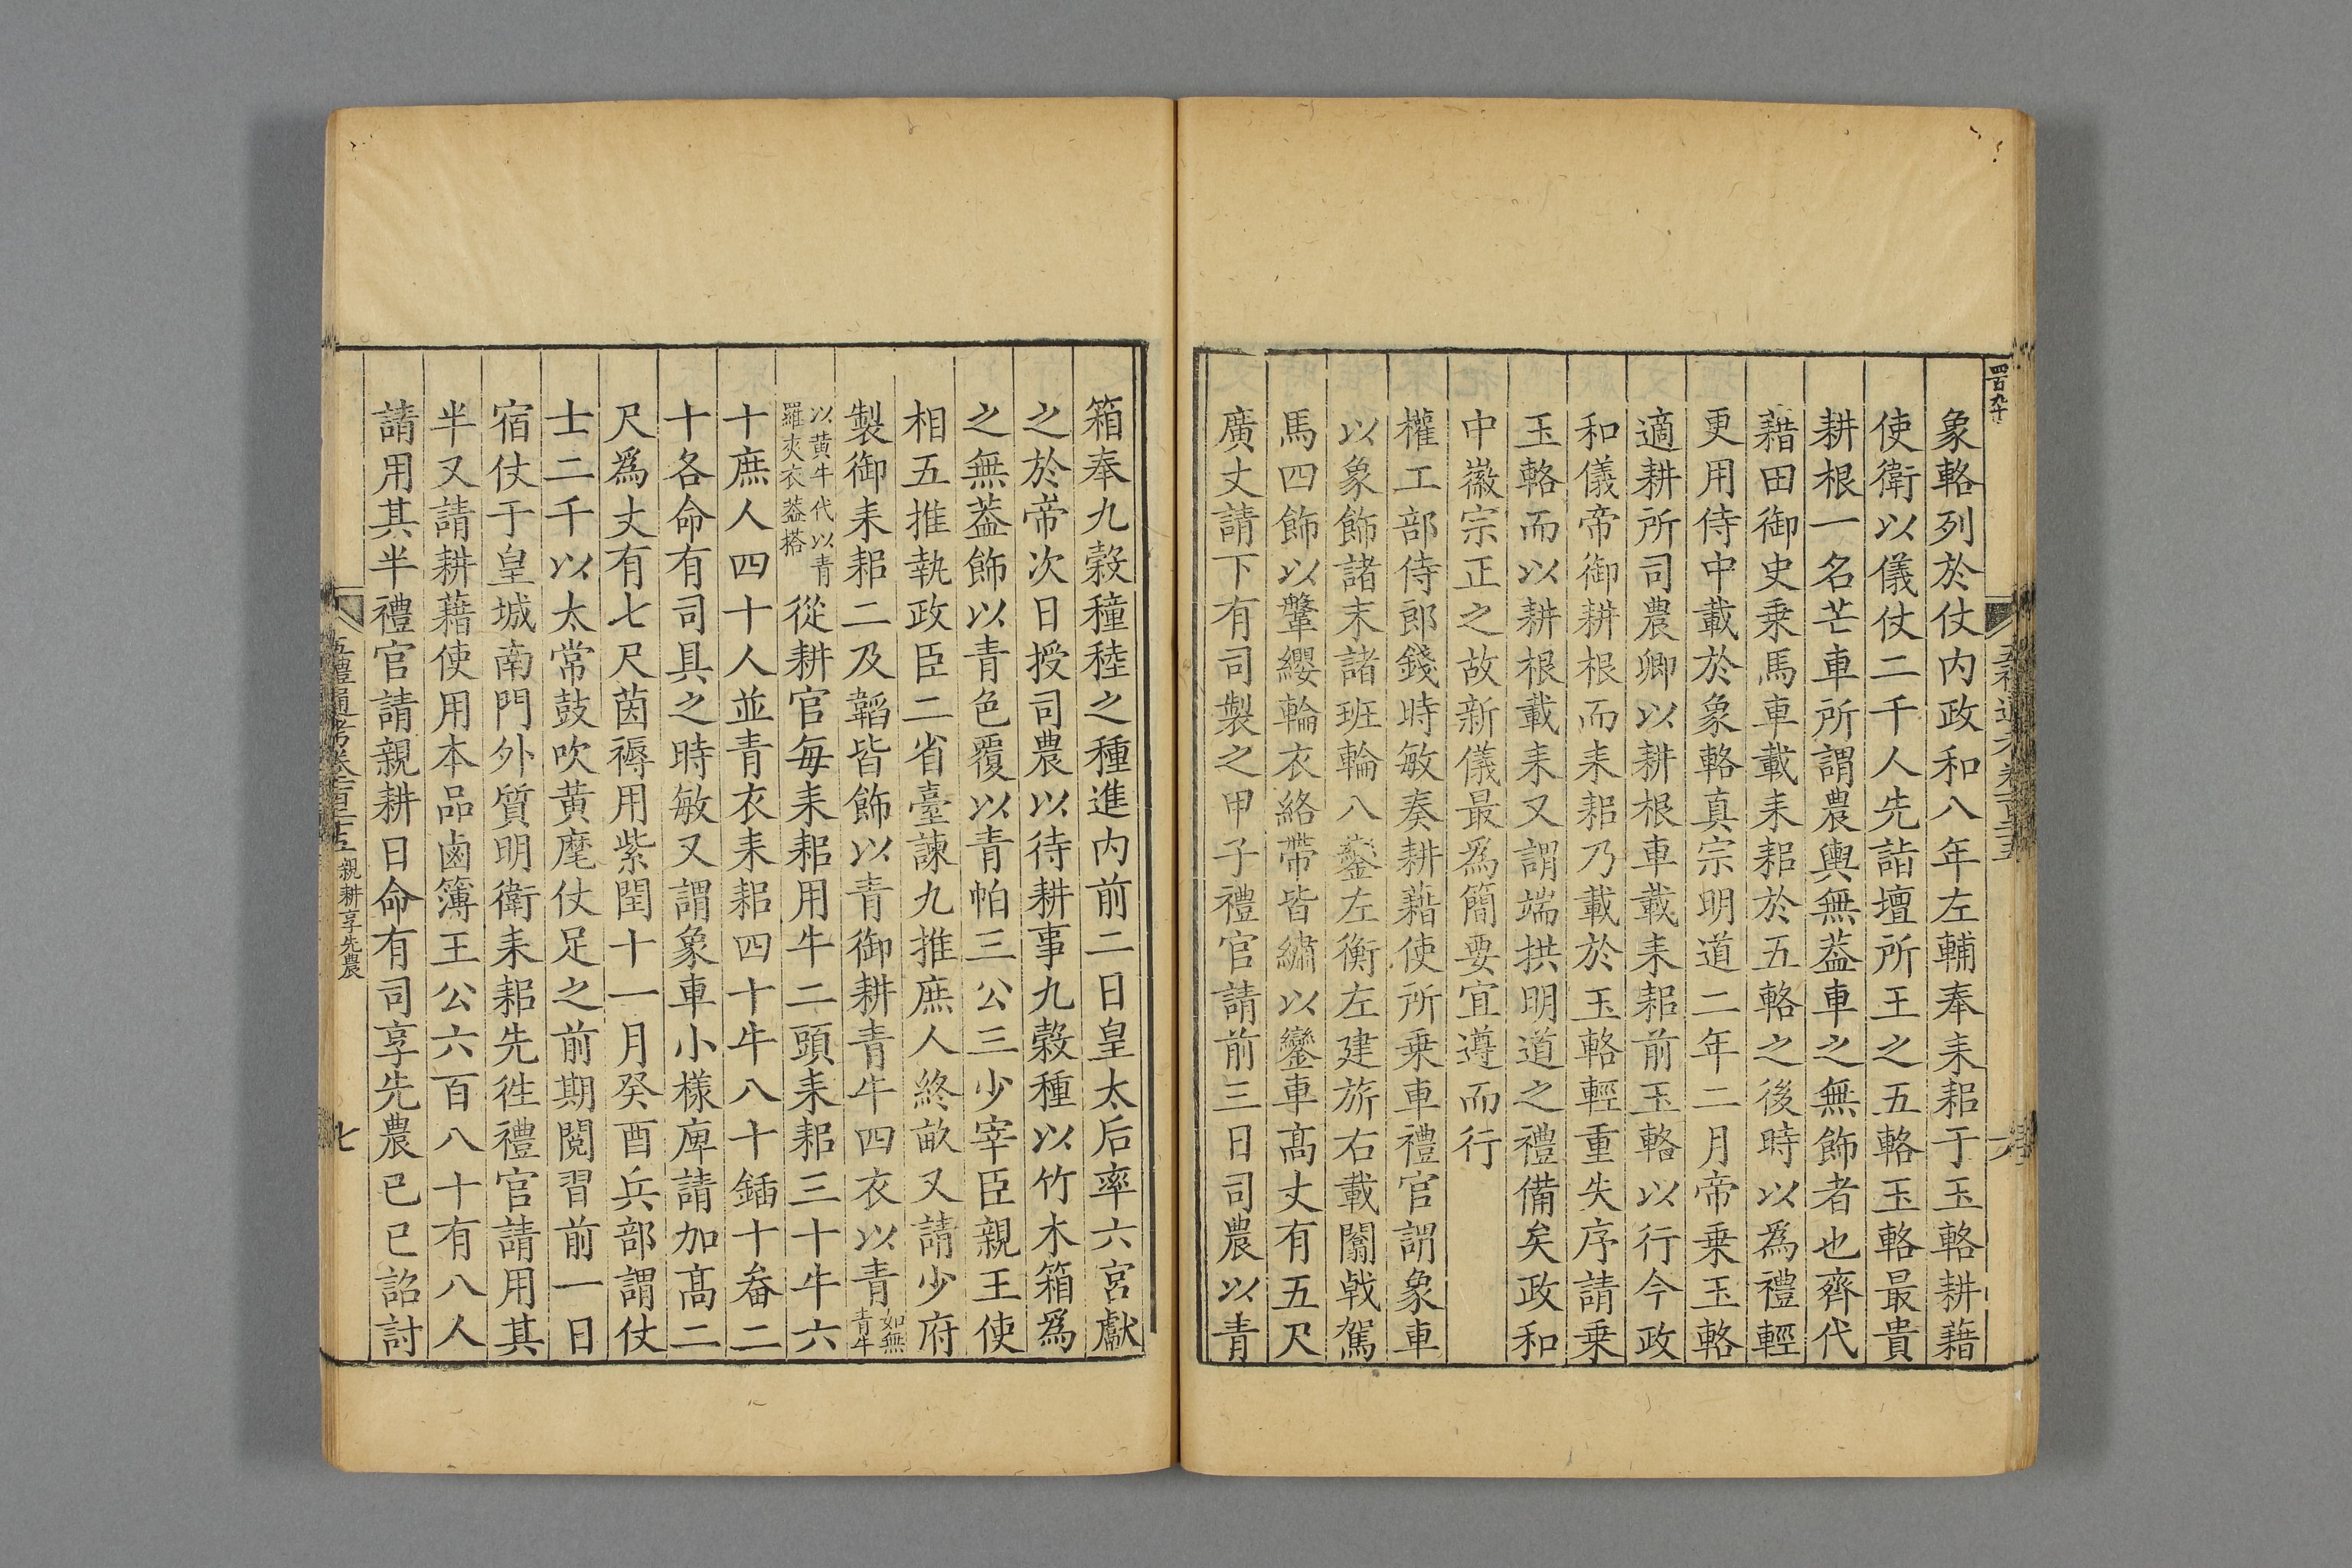 四百九十
象輅列於仗内政和八年左輔奉耒耜于玉輅耕藉
使衛以儀仗二千人先詣壇所王之五輅玉輅最貴
耕根一名芒車所謂農輿無葢車之無飾者也齊代
藉田御史乗馬車載耒耜於五輅之後時以爲禮輕
更用侍中載於象輅真宗明道二年二月帝乗玉輅
適耕所司農卿以耕根車載耒耜前玉輅以行今政
和儀帝御耕根而耒耜乃載於玉輅輕重失序請乗
玉輅而以耕根載耒又謂端拱明道之禮備矣政和
中徽宗正之故新儀最爲簡要宜遵而行
權工部侍郎錢時敏奏耕藉使所乗車禮官謂象車
以象飾諸末諸班輪八鑾左衡左建旂右載闟戟駕
馬四飾以鞶纓輪衣絡帶皆繡以鑾車髙丈有五尺
廣丈請下有司製之甲子禮官請前三日司農以青
箱奉九榖穜稑之種進内前二日皇太后率六宮獻
之於帝次日授司農以待耕事九榖種以竹木箱爲
之無葢飾以青色覆以青帕三公三少宰臣親王使
相五推執政臣二省臺諫九推庶人終畝又請少府
製御耒耜二及韜皆飾以青御耕青牛四衣以青如無青牛
以黄牛代以青羅夾衣葢搭從耕官每耒耜用牛二頭耒耜三十牛六
十庶人四十人並青衣耒耜四十牛八十鍤十畚二
十各命有司具之時敏又謂象車小樣庳請加髙二
尺爲丈有七尺茵褥用紫閏十一月癸酉兵部謂仗
士二千以太常鼓吹黄麾仗足之前期閱習前一日
宿仗于皇城南門外質明衛耒耜先徃禮官請用其
半又請耕藉使用本品鹵簿王公六百八十有八人
請用其半禮官請親耕日命有司享先農已巳詔討
五禮通考卷一百二十五 親耕享先農 七